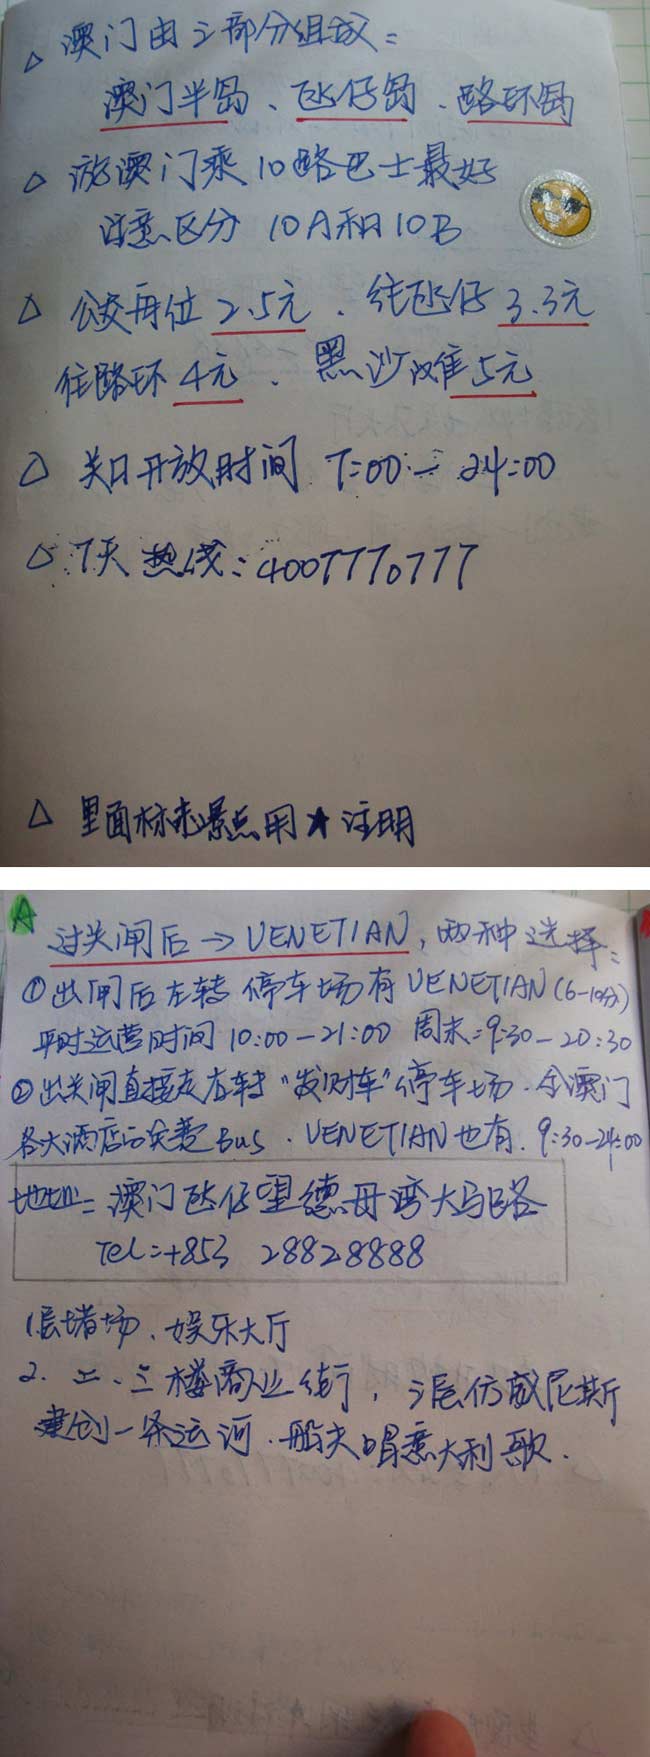 △ 澳门由三部分组成:
澳门半岛、氹仔岛、路环岛
△ 游澳门乘10路巴士最好
注意区分 10A和10B
△ 公交每位2.5元、往氹仔3.3元
往路环4元、黑沙滩5元
△ 关口开放时间 7:00 — 24:00
△ 7天热线: 4007770777
△ 里面标志景点用★注明
A
过关闸后→VENETIAN, 两种选择:
① 出闸后左转停车场有VENETIAN(6-10分)
平时运营时间10:00—21:00 周末:9:30—20:30
② 出关闸直接走右转“发财车”停车场.含澳门
各大酒店的免费Bus. VENETIAN也有. 9:30-24:00
地址:澳门氹仔望德母湾大马路
Tel:+853 28828888
1层堵场、娱乐大厅
2. 二、三楼商业街, 三层仿威尼斯
建创一条运河.船夫唱意大利歌.